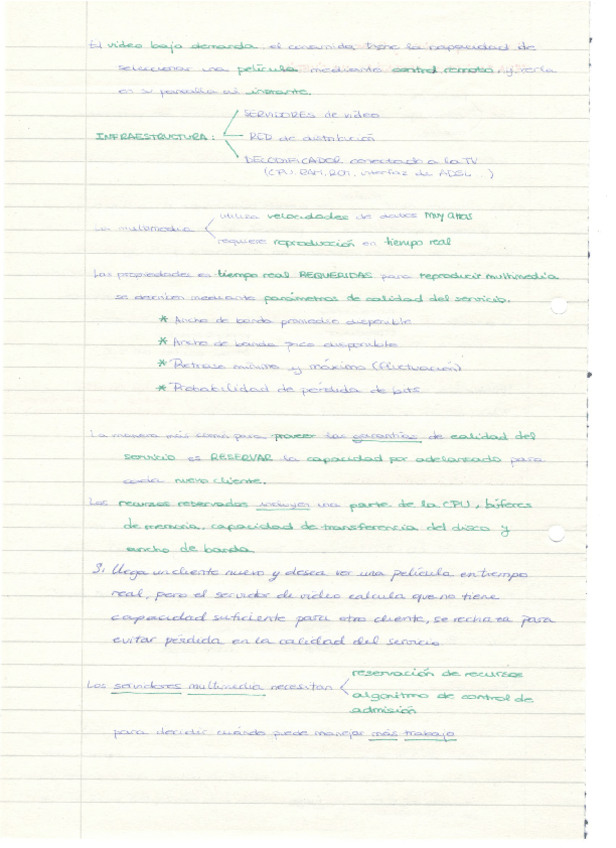 El video bajo demanda el consumidor tiene la capacidad de
seleccionar una película mediante control remoto, y verla
en su pantalla al instante.
SERVIDORES de video
INFRAESTRUCTURA: RED de distribución
DECODIFICADOR conectado a la TV
(CPU, RAM, ROM, interfaz de ADSL...)
La multimedia utiliza velocidades de datos muy altas
requiere reproducción en tiempo real
Las propiedades en tiempo real REQUERIDAS para reproducir multimedia
se describen mediante parámetros de calidad del servicio.
* Ancho de banda promedio disponible
* Ancho de banda pico disponible
* Retraso mínimo y máximo (fluctuación)
* Probabilidad de pérdida de bits
La manera más común para proveer las garantías de calidad del
servicio es RESERVAR la capacidad por adelantado para
cada nuevo cliente.
Los recursos reservados incluyen una parte de la CPU, búferes
de memoria, capacidad de transferencia del disco y
ancho de banda
Si llega un cliente nuevo y desea ver una película en tiempo
real, pero el servidor de video calcula que no tiene
capacidad suficiente para otro cliente, se rechaza para
evitar pérdida en la calidad del servicio
Los servidores multimedia necesitan reservación de recursos
algoritmo de control de
admisión
para decidir cuándo puede manejar más trabajo